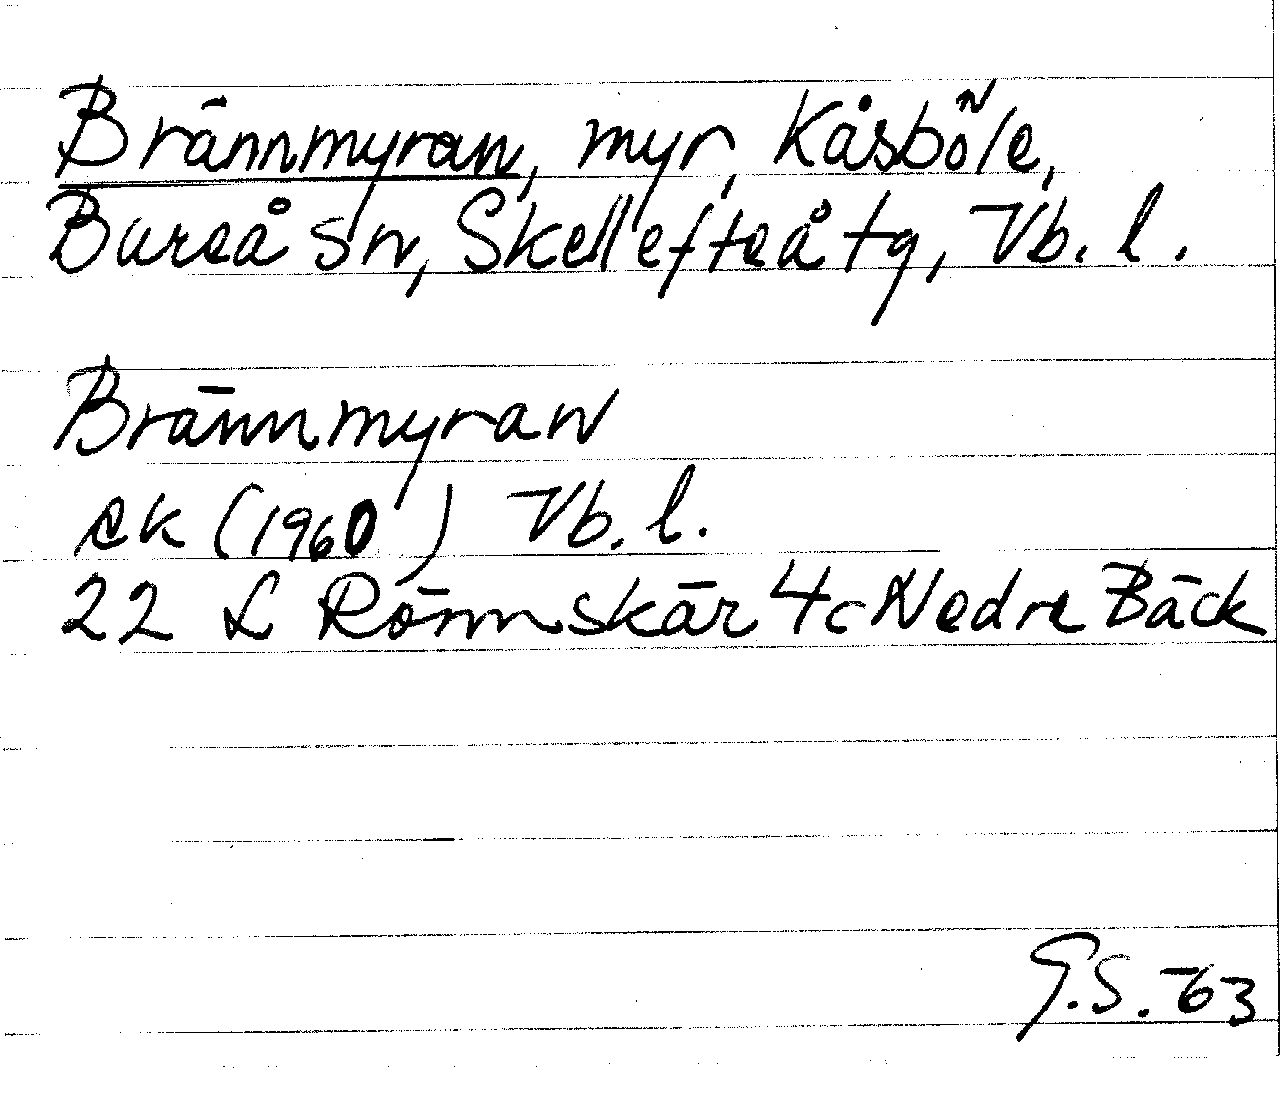 Brännmyran, myr, Kåsböle,
Bureå sn, Skellefteå tg, Vb. l.
Brännmyran
ek (1960) Vb. l.
22 L Rönnskär 4c Nedre Bäck
G.S. -63